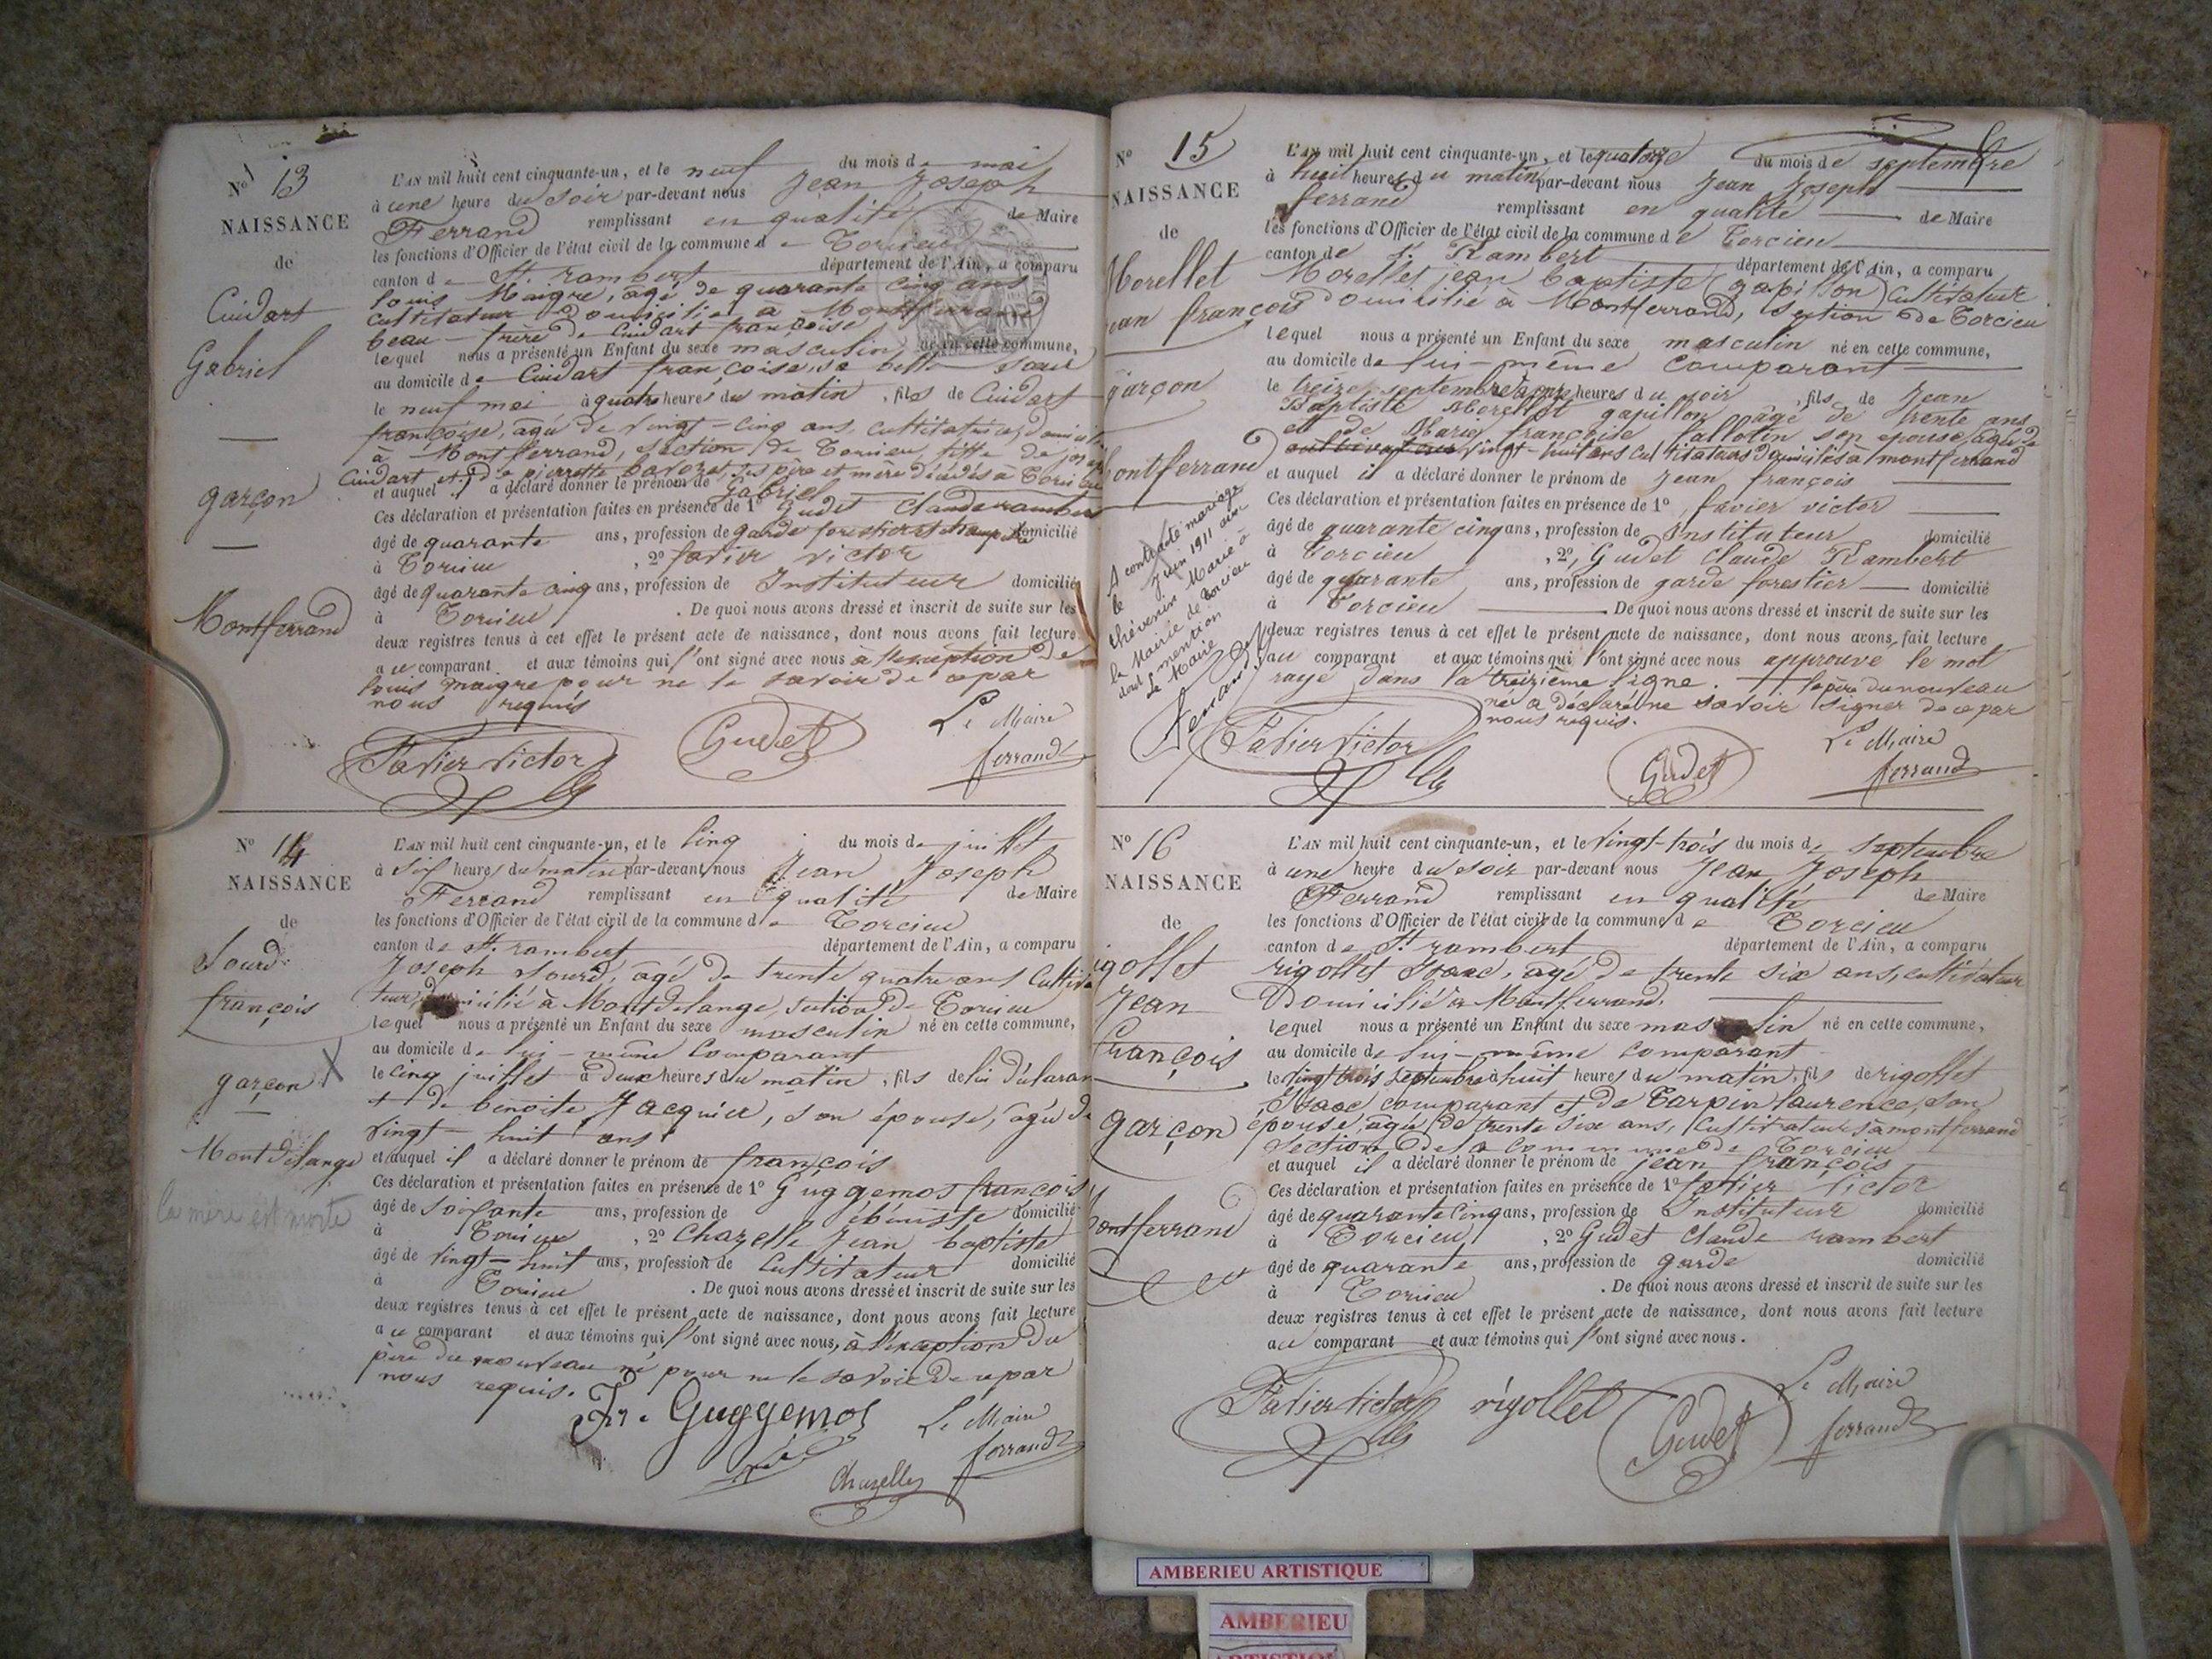 N° 13
NAISSANCE
de
Cuidart
Gabriel
garçon
Montferrand
L'AN mil huit cent cinquante-un, et le neuf du mois de mai
à une heure du soir par-devant nous Jean Joseph
Ferrand remplissant en qualité de Maire
les fonctions d'Officier de l'état civil de la commune de Torcieu
canton de St. rambert département de l'Ain, a comparu
louis Maigre, âgé de quarante cinq ans
cultivateur domicilié à Montferrand
beau-frère de Cuidart françoise
lequel nous a présenté un Enfant du sexe masculin né en cette commune,
au domicile de Cuidart françoise, sa belle soeur
le neuf mai à quatre heures du matin, fils de Cuidart
françoise, âgée de vingt-cinq ans, cultivatrice, domiciliée
à Montferrand, section de Torcieu, fille de joseph
Cuidart et de pierrette ses père et mère décédés à Torcieu
et auquel il a déclaré donner le prénom de Gabriel
Ces déclaration et présentation faites en présence de 1° Gudet Claude rambert
âgé de quarante ans, profession de garde forestier et champêtre domicilié
à Torcieu, 2° favier victor
âgé de quarante cinq ans, profession de Instituteur domicilié
à Torcieu. De quoi nous avons dressé et inscrit de suite sur les
deux registres tenus à cet effet le présent acte de naissance, dont nous avons fait lecture
au comparant et aux témoins qui l'ont signé avec nous à l'exception de
louis maigre pour ne le savoir de ce par
nous requis
Favier victor Gudet Le Maire
ferrand
N° 14
NAISSANCE
de
Sourd
françois
garçon X
Mont de lange
la mère est morte
L'AN mil huit cent cinquante-un, et le cinq du mois de juillet
à six heures du matin par-devant nous Jean Joseph
Ferrand remplissant en qualité de Maire
les fonctions d'Officier de l'état civil de la commune de Torcieu
canton de St. rambert département de l'Ain, a comparu
Joseph Sourd, âgé de trente quatre ans Cultiva
teur domicilié à Mont de lange, section de Torcieu
lequel nous a présenté un Enfant du sexe masculin né en cette commune,
au domicile de lui-même Comparant
le cinq juillet à deux heures du matin, fils de lui déclarant
et de benoite Jacquier, son épouse, âgée de
vingt-huit ans
et auquel il a déclaré donner le prénom de françois
Ces déclaration et présentation faites en présence de 1° Guggemos françois
âgé de soixante ans, profession de ébéniste domicilié
à Torcieu, 2° Chazelle Jean baptiste
âgé de vingt-huit ans, profession de Cultivateur domicilié
à Torcieu. De quoi nous avons dressé et inscrit de suite sur les
deux registres tenus à cet effet le présent acte de naissance, dont nous avons fait lecture
au comparant et aux témoins qui l'ont signé avec nous, à l'exception du
père du nouveau né pour ne le savoir de ce par
nous requis.
Fr. Guggemos Le Maire
Chazelle ferrand
N° 15
NAISSANCE
de
Morellet
jean françois
garçon
Montferrand
A contracté mariage
le Juin 1911 avec
thévenin Marie à
la Mairie de Torcieu
dont mention
le Maire
L'AN mil huit cent cinquante-un, et le quatorze du mois de septembre
à huit heures du matin par-devant nous Jean Joseph
ferrand remplissant en qualité de Maire
les fonctions d'Officier de l'état civil de la commune de Torcieu
canton de St. Rambert département de l'Ain, a comparu
Morellet jean baptiste (gapillon) Cultivateur
domicilié à Montferrand, Section de Torcieu
lequel nous a présenté un Enfant du sexe masculin né en cette commune,
au domicile de lui-même comparant
le treize septembre à onze heures du soir, fils de Jean
Baptiste Morellet gapillon âgé de trente ans
et de Marie françoise fallotin son épouse, âgée de
vingt-huit ans cultivateurs domiciliés à montferrand
et auquel il a déclaré donner le prénom de Jean françois
Ces déclaration et présentation faites en présence de 1°, favier victor
âgé de quarante cinq ans, profession de Instituteur domicilié
à Torcieu, 2°, Gudet Claude Rambert
âgé de quarante ans, profession de garde forestier domicilié
à Torcieu. De quoi nous avons dressé et inscrit de suite sur les
deux registres tenus à cet effet le présent acte de naissance, dont nous avons fait lecture
au comparant et aux témoins qui l'ont signé avec nous approuvé le mot
rayé dans la treizième ligne. le père du nouveau
né a déclaré ne savoir signer de ce par
nous requis.
Favier Victor Gudet Le Maire
ferrand
N° 16
NAISSANCE
de
rigollet
Jean
françois
garçon
Montferrand
L'AN mil huit cent cinquante-un, et le vingt-trois du mois de septembre
à une heure du soir par-devant nous Jean Joseph
Ferrand remplissant en qualité de Maire
les fonctions d'Officier de l'état civil de la commune de Torcieu
canton de St. rambert département de l'Ain, a comparu
rigollet Isaac, âgé de trente six ans, cultivateur
Domicilié à Montferrand.
lequel nous a présenté un Enfant du sexe masculin né en cette commune,
au domicile de lui-même comparant
le vingt trois septembre à huit heures du matin, fils de rigollet
Isaac comparant et de Carpin laurence, son
épouse, âgée de trente six ans, Cultivateurs à montferrand
section de la commune de Torcieu
et auquel il a déclaré donner le prénom de jean françois
Ces déclaration et présentation faites en présence de 1° favier victor
âgé de quarante cinq ans, profession de Instituteur domicilié
à Torcieu, 2° Gudet Claude rambert
âgé de quarante ans, profession de garde domicilié
à Torcieu. De quoi nous avons dressé et inscrit de suite sur les
deux registres tenus à cet effet le présent acte de naissance, dont nous avons fait lecture
au comparant et aux témoins qui l'ont signé avec nous.
Favier Victor rigollet Gudet Le Maire
ferrand
AMBERIEU ARTISTIQUE
AMBERIEU
ARTISTIQUE